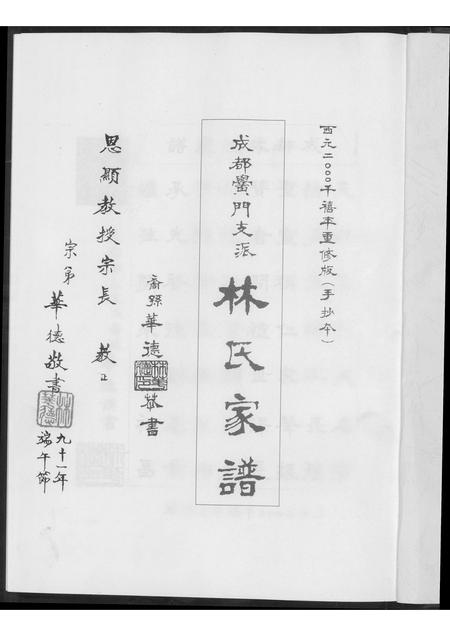 西元二〇〇〇千禧年重修版(手抄本)
成都黌門支派
林氏家譜
裔孫華德
恭書
恩顯教授宗長 教正
宗弟 華德敬書
九十一年
端午節